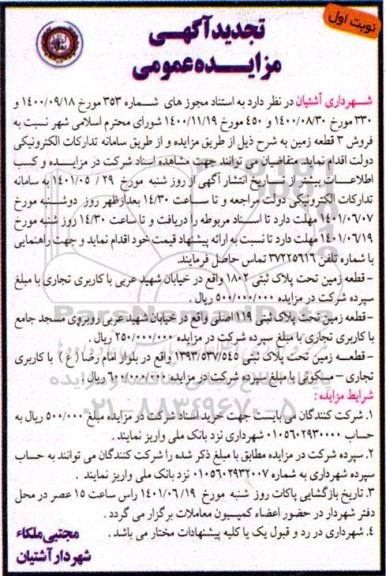 نوبت اول
تجدید آگهی
مزایده عمومی
شهرداری آشتیان در نظر دارد به استناد مجوز های شماره ۳۵۳ مورخ ۱۴۰۰/۰۹/۱۸ و
۳۳۰ مورخ ۱۴۰۰/۰۸/۳۰ و ۴۵۰ مورخ ۱۴۰۰/۱۱/۱۹ شورای محترم اسلامی شهر نسبت به
فروش ۳ قطعه زمین به شرح ذیل از طریق مزایده و از طریق سامانه تدارکات الکترونیکی
دولت اقدام نماید. متقاضیان می توانند جهت مشاهده اسناد شرکت در مزایده و کسب
اطلاعات بیشتر از تاریخ انتشار آگهی از روز شنبه مورخ ۲۹ / ۰۵ /۱۴۰۱ به سامانه
تدارکات الکترونیکی دولت مراجعه و تا ساعت ۱۴/۳۰ بعدازظهر روز دوشنبه مورخ
۱۴۰۱/۰۶/۰۷ مهلت دارد تا اسناد مربوطه را دریافت و تا ساعت ۱۴/۳۰ روز شنبه مورخ
۱۴۰۱/۰۶/۱۹ مهلت دارد تا نسبت به ارائه پیشنهاد قیمت خود اقدام نماید و جهت راهنمایی
با شماره تلفن ۳۷۲۲۵۶۱۶ تماس حاصل فرمایند.
- قطعه زمین تحت پلاک ثبتی ۱۸۰۲ واقع در خیابان شهید عربی با کاربری تجاری با مبلغ
سپرده شرکت در مزایده ۵۰۰/۰۰۰/۰۰۰ ریال .
- قطعه زمین تحت پلاک ثبتی ۱۱۹ اصلی واقع در خیابان شهید عربی روبروی مسجد جامع
با کاربری تجاری با مبلغ سپرده شرکت در مزایده ۲۵۰/۰۰۰/۰۰۰ ریال .
- قطعه زمین تحت پلاک ثبتی ۱۳۹۳/۵۳۷/۵۴۵ واقع در بلوار امام رضا (ع) با کاربری
تجاری – مسکونی با مبلغ سپرده شرکت در مزایده ۶۰۰/۰۰۰/۰۰۰ ریال .
شرایط مزایده :
۱. شرکت کنندگان می بایست جهت خرید اسناد شرکت در مزایده مبلغ ۵۰۰/۰۰۰ ریال به
حساب ۰۱۰۵۶۰۲۹۳۰۰۰۰ شهرداری نزد بانک ملی واریز نمایند .
۲. سپرده شرکت در مزایده مطابق با مبلغ ذکر شده را شرکت کنندگان می توانند به حساب
سپرده شهرداری به شماره ۰۱۰۵۶۰۲۹۳۲۰۰۷ نزد بانک ملی واریز نمایند .
۳. تاریخ بازگشایی پاکات روز شنبه مورخ ۱۴۰۱/۰۶/۱۹ راس ساعت ۱۵ عصر در محل
دفتر شهردار در حضور اعضاء کمیسیون معاملات برگزار می گردد .
۴. شهرداری در رد و قبول یک یا کلیه پیشنهادات مختار می باشد .
مجتبی ملکاء
شهردار آشتیان
۰۲۱-۸۸۳۴۹۶۷۰-۵